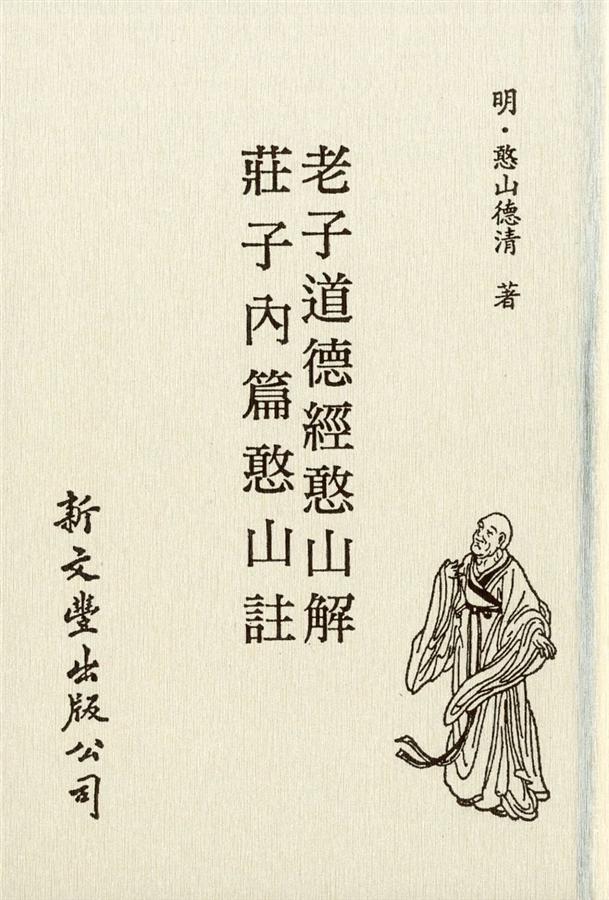 明・憨山德清 著
老子道德經憨山解
莊子內篇憨山註
新文豐出版公司